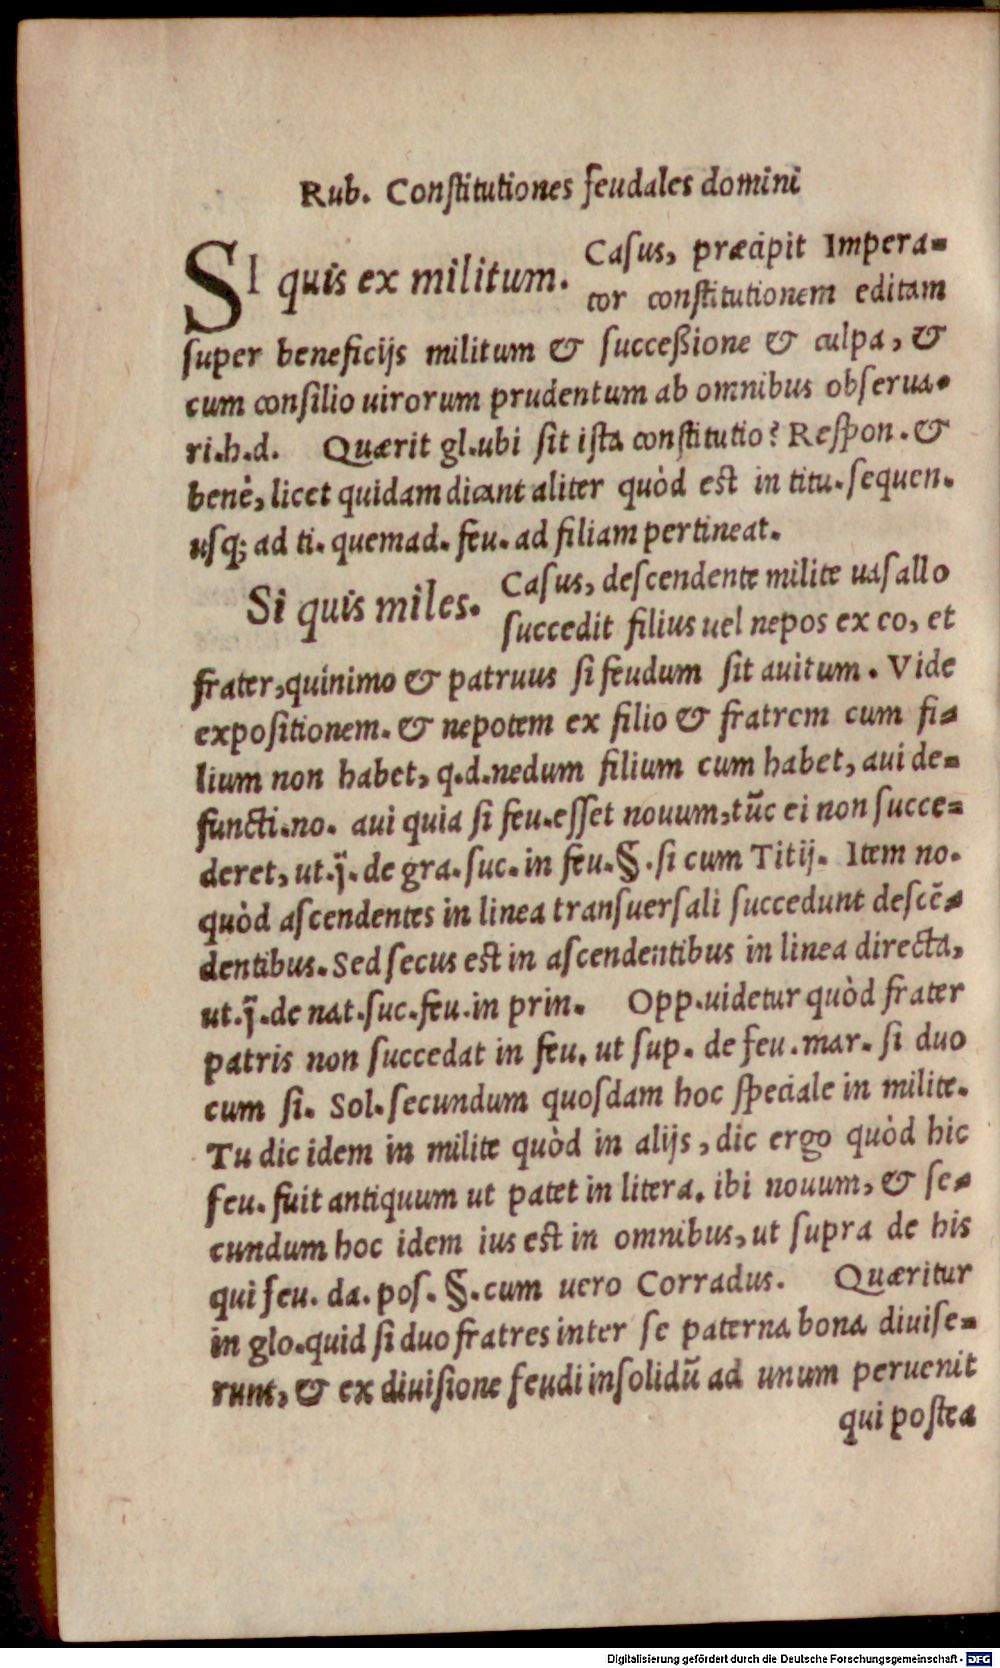 Rub. Conſtitutiones feudales domini
SI quis ex militum. Caſus, præcipit Impera-
tor conſtitutionem editam
ſuper beneficijs militum & ſucceßione & culpa, &
cum conſilio uirorum prudentum ab omnibus obſerua-
ri.h.d. Quærit gl.ubi ſit iſta conſtitutio? Reſpon. &
benè, licet quidam dicant aliter quòd est in titu. ſequen.
uſq; ad ti. quemad. feu. ad filiam pertineat.
Si quis miles. Caſus, deſcendente milite uaſallo
ſuccedit filius uel nepos ex eo, et
frater, quinimo & patruus ſi feudum ſit auitum. Vide
expoſitionem. & nepotem ex filio & fratrem cum fi-
lium non habet, q.d.nedum filium cum habet, aui de-
functi.no. aui quia ſi feu.eſſet nouum, tūc ei non ſucce-
deret, ut.j̈. de gra. ſuc. in feu. §. ſi cum Titij. Item no.
quòd aſcendentes in linea tranſuerſali ſuccedunt deſcē-
dentibus. Sed ſecus est in aſcendentibus in linea directa,
ut.j̈.de nat. ſuc. feu. in prin. Opp. uidetur quòd frater
patris non ſuccedat in feu. ut ſup. de feu. mar. ſi duo
cum ſi. Sol. ſecundum quoſdam hoc ſpeciale in milite.
Tu dic idem in milite quòd in alijs, dic ergo quòd hic
feu. fuit antiquum ut patet in litera. ibi nouum, & ſe-
cundum hoc idem ius est in omnibus, ut ſupra de his
qui feu. da. poſ. §. cum uero Corradus. Quæritur
in glo. quid ſi duo fratres inter ſe paterna bona diuiſe-
runt, & ex diuiſione feudi inſolidū ad unum peruenit
qui poſtea
Digitalisierung gefördert durch die Deutsche Forschungsgemeinschaft - DFG